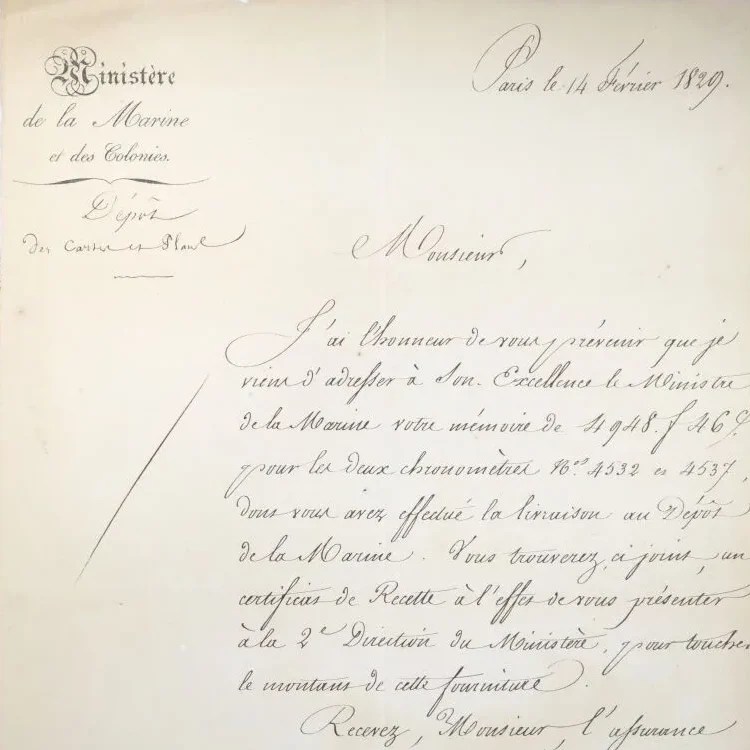 Ministère
de la Marine
et des Colonies.
Dépôt
des Cartes et Plans
Paris le 14 Février 1829.
Monsieur,
J'ai l'honneur de vous prévenir que je
viens d'adresser à Son Excellence le Ministre
de la Marine votre mémoire de 4948.f 46 c.
pour les deux chronomètres Nos. 4532 et 4537,
dont vous avez effectué la livraison au Dépôt
de la Marine. Vous trouverez, ci joint, un
certificat de Recette à l'effet de vous présenter
à la 2e Direction du Ministère, pour toucher
le montant de cette fourniture.
Recevez, Monsieur, l'assurance